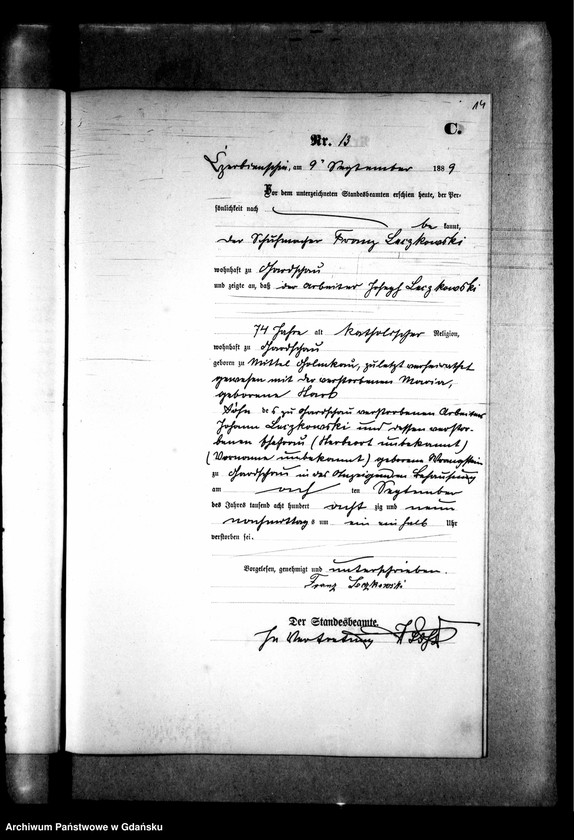 14
C.
Nr. 13
Czerbienschin, am 9ᵗ September 1889
Vor dem unterzeichneten Standesbeamten erschien heute, der Per-
sönlichkeit nach
be kannt,
der Schuhmacher Franz Leczkowski
wohnhaft zu Gardschau
und zeigte an, daß der Arbeiter Joseph Leczkowski
74 Jahre alt katholischer Religion,
wohnhaft zu Gardschau
geboren zu Mittel Golmkau, zuletzt verheirathet
gewesen mit der verstorbenen Maria,
geborene
Sohn des zu Gardschau verstorbenen Arbeiters
Johann Leczkowski und dessen verstor-
benen Ehefrau (unbekannt)
(Vorname unbekannt) geborene
zu Gardschau in des Anzeigenden Behausung
am acht ten September
des Jahres tausend acht hundert acht zig und neun
nachmittags um ein ein halb Uhr
verstorben sei.
Vorgelesen, genehmigt und unterschrieben.
Franz Leczkowski
Der Standesbeamte.
In Vertretung
Archiwum Państwowe w Gdańsku